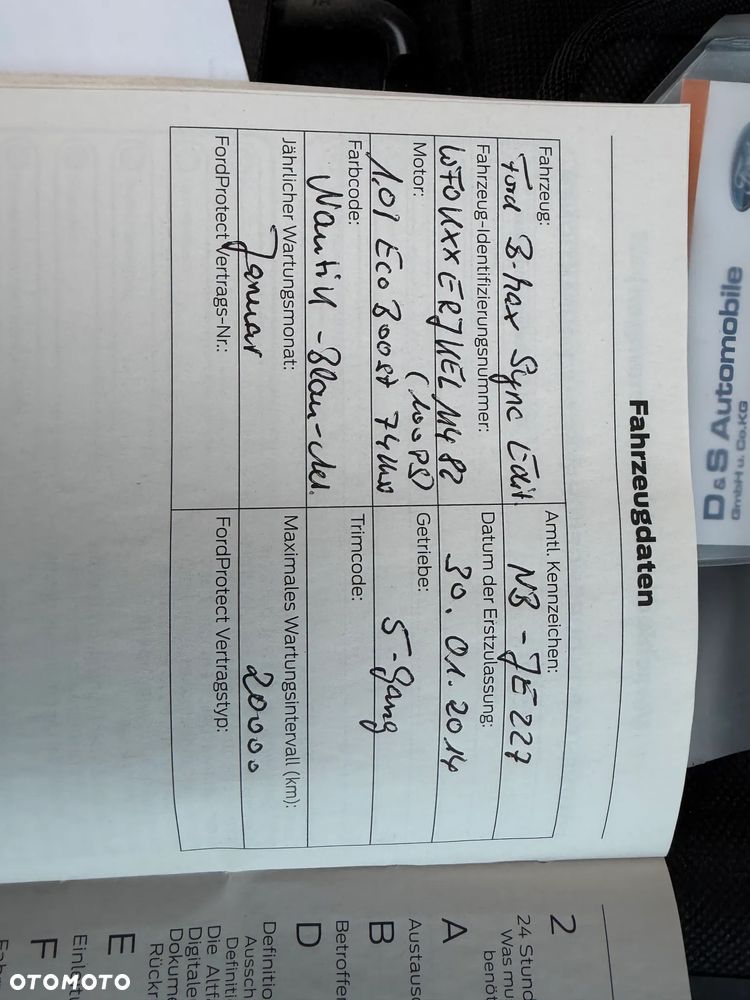 Fahrzeugdaten
Fahrzeug:
Ford B-Max Sync Edit.
Amtl. Kennzeichen:
NB-JE 227
Fahrzeug-Identifizierungsnummer:
WF0KXXERJKEL11482
Datum der Erstzulassung:
30.01.2014
Motor:
(100PS)
1.0l EcoBoost 74kw
Getriebe:
5-Gang
Farbcode:
Nautik-Blau-Met.
Trimcode:
Jährlicher Wartungsmonat:
Januar
Maximales Wartungsintervall (km):
20000
FordProtect Vertrags-Nr.:
FordProtect Vertragstyp:
D&S Automobile
GmbH u. Co.KG
2
24 Stund
Was mu
benöt
A
Austausc
B
Betroffer
D
Definitio
Aussch
Definiti
Die Altf
Digitale
Dokume
Rückr
E
F
OTOMOTO
OTOMOTO